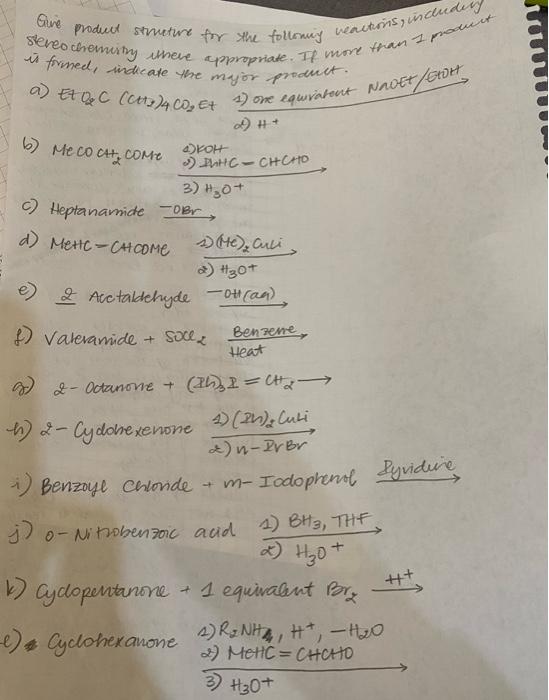 Give product structure for the following reactions, including
stereochemistry where appropriate. If more than 1 product
is formed, indicate the major product.
a) EtO₂C (CH₂)₄ CO₂Et 1) one equivalent NaOEt/EtOH
2) H⁺
b) MeCOCH₂COMe 1) KOH
2) PhHC=CHCHO
3) H₃O⁺
c) Heptanamide ⁻OBr
d) MeHC=CHCOMe 1) (Me)₂CuLi
2) H₃O⁺
e) 2 Acetaldehyde ⁻OH (aq)
f) Valeramide + SOCl₂ Benzene
Heat
g) 2-Octanone + (Ph)₃P=CH₂ →
h) 2-Cyclohexenone 1) (Ph)₂CuLi
2) n-PrBr
i) Benzoyl Chloride + m-Iodophenol Pyridine
j) o-Nitrobenzoic acid 1) BH₃, THF
2) H₃O⁺
k) Cyclopentanone + 1 equivalent Br₂ H⁺
l) Cyclohexanone 1) R₂NH, H⁺, -H₂O
2) MeHC=CHCHO
3) H₃O⁺